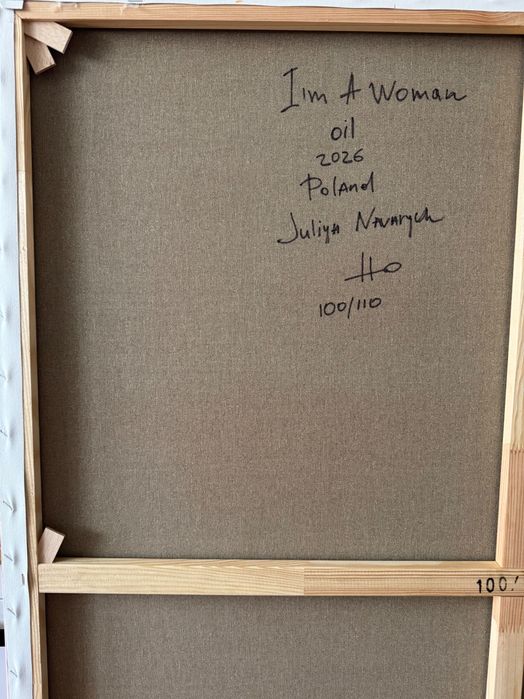 I'm A Woman
oil
2026
Poland
Juliya Navarych
100/110
100.